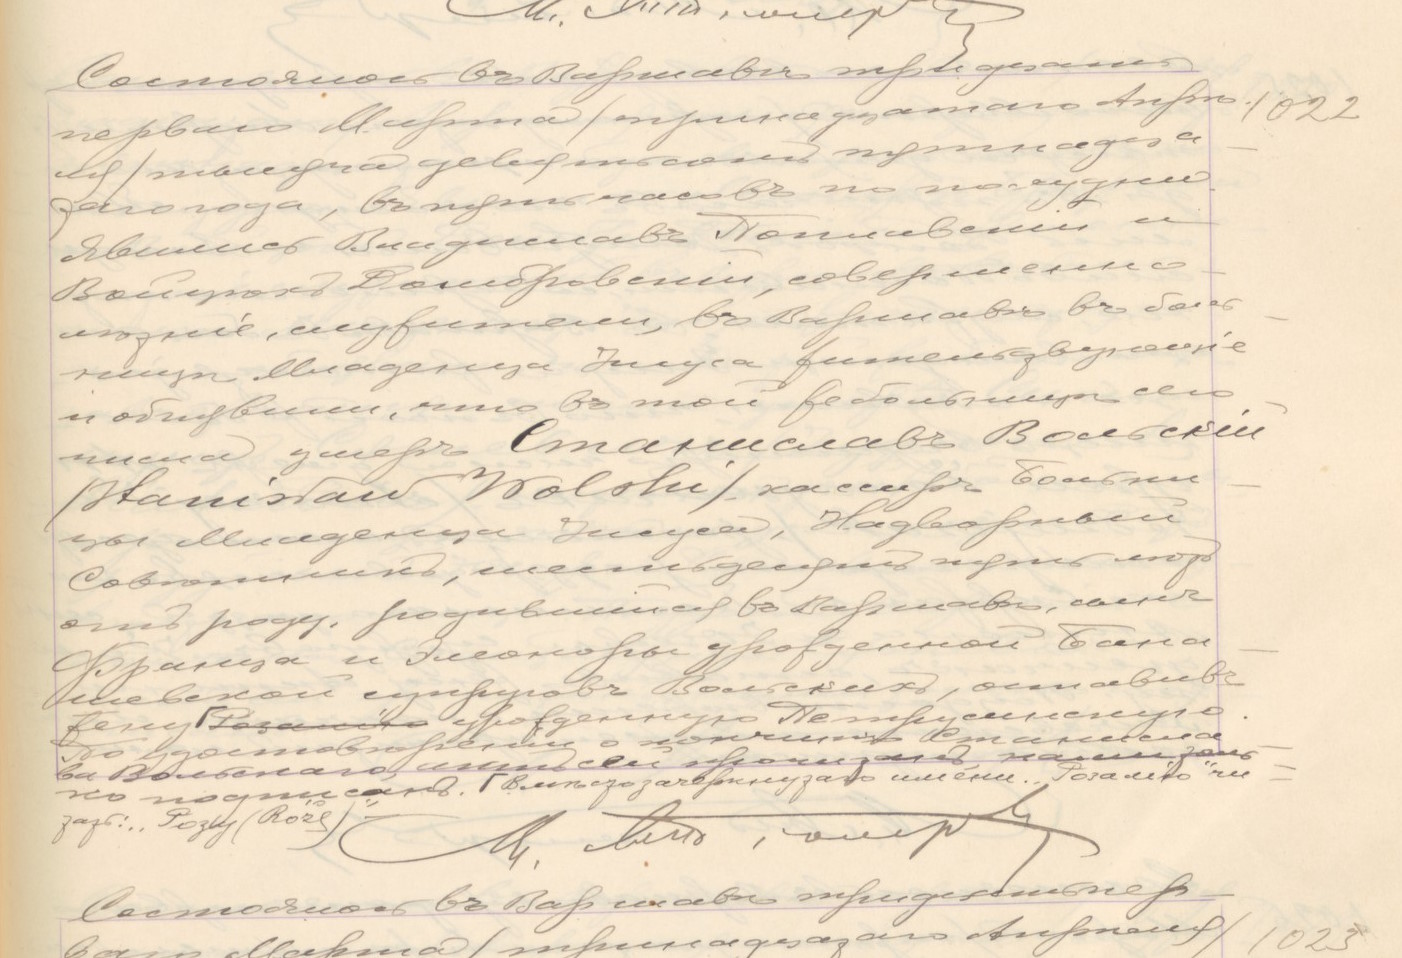 Состоялось въ Варшавѣ тридцать
перваго Марта / тринадцатаго Апрѣ- 1022
ля / тысяча девятьсотъ пятнадца
таго года, въ пять часовъ по полудни
Явились Владиславъ Поплавскій и
Войцѣхъ Домбровскій, совершенно-
лѣтніе, служители, въ Варшавѣ въ боль-
ницѣ Младенца Іисуса жительствующіе
и объявили, что въ той же больницѣ сего
числа умеръ Станиславъ Вольскій
/Stanisław Wolski/ кассиръ Больни-
цы Младенца Іисуса, Надворный
Совѣтникъ, шестьдесятъ пять лѣтъ
отъ роду, родившійся въ Варшавѣ, сынъ
Франца и Элеоноры урожденной Бана-
шевской супруговъ Вольскихъ, оставивъ
жену Розалію урожденную Петрусинскую.
По удостовѣреніи о кончинѣ Станисла
ва Вольскаго, актъ сей прочитанъ нами толь-
ко подписанъ. Вмѣсто зачеркнутаго имени „Розалію" чи-
тать: „Розу (Różę)"
М.
Состоялось въ Варшавѣ тридцать пер-
ваго Марта / тринадцатаго Апрѣля / 1023